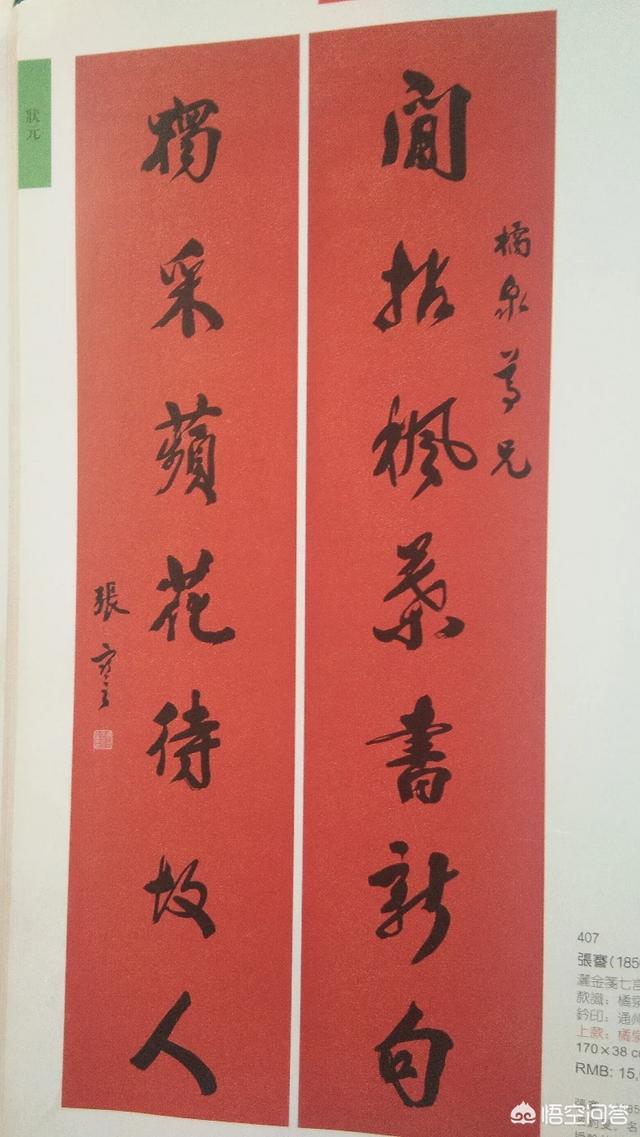 狀元
橘泉尊兄
閒拈楓葉書新句
獨采蘋花待故人
張謇
407
張謇(185
灑金箋七言
款識：橘泉
鈐印：通州
上款：橘泉
170×38 c
RMB: 15,
悟空问答